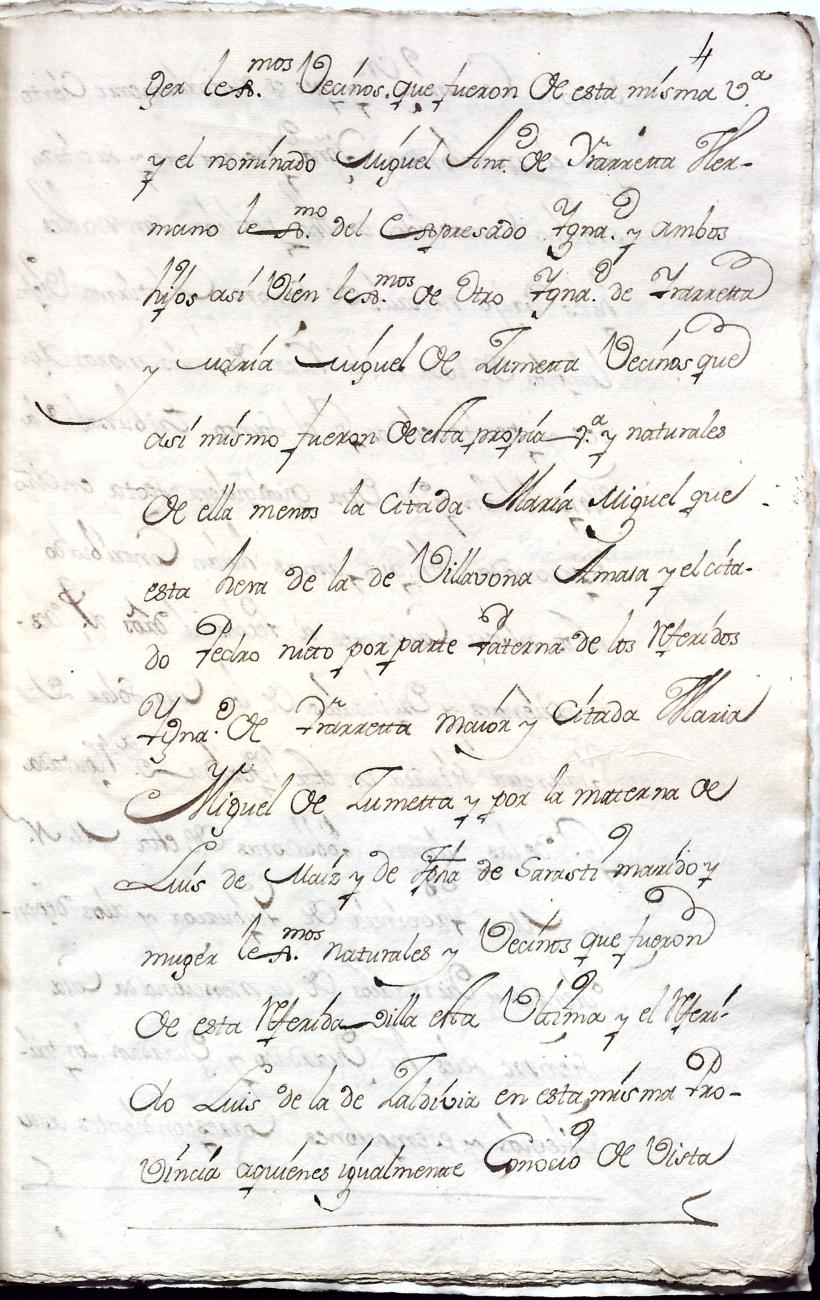 4
ger lex.mos Vecinos. que fueron de esta misma v.a
y el nominado Miguel Ant.o de Yrarretta Her-
mano lex.mo del Expresado Ygna.o y ambos
hijos así vien lex.mos de otro Ygna.o de Yrarretta
y María Miguel de Zumetta Vecinos que
así mismo fueron de esta propia v.a y naturales
de ella menos la Citada María Miguel que
esta hera de la de Villavona Amasa y el cita-
do Pedro nieto por parte Paterna de los Referidos
Ygna.o de Yrarretta maior y Citada Maria
Miguel de Zumetta y por la materna de
Luís de Maiz y de de Sarasti marido y
muger lex.mos naturales y Vecinos que fueron
de esta Referida villa esta Ultima y el Referi-
do Luis de la de Zaldivia en esta misma Pro-
vincia aquienes igualmente Conocio de Vista